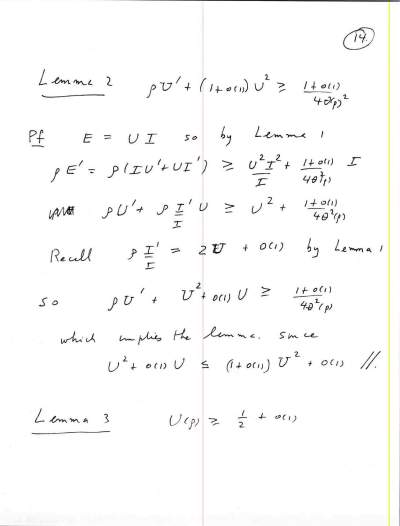 14.
Lemma 2 ρU' + (1+o(1))U² ≥ (1+o(1))/(4θ(ρ)²)
Pf E = UI so by Lemma 1
ρE' = ρ(IU'+UI') ≥ U²I²/I + (1+o(1))/(4θ²(ρ)) I
ρU' + ρ I'/I U ≥ U² + (1+o(1))/(4θ²(ρ))
Recall ρ I'/I = 2U + o(1) by Lemma 1
so ρU' + U² + o(1)U ≥ (1+o(1))/(4θ²(ρ))
which implies the lemma. since
U² + o(1)U ≤ (1+o(1))U² + o(1) //.
Lemma 3 U(ρ) ≥ 1/2 + o(1)